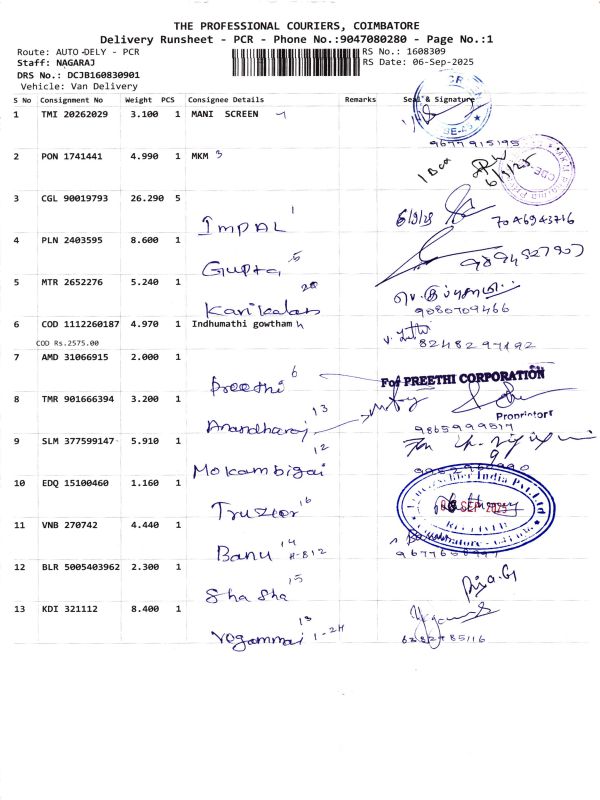 THE PROFESSIONAL COURIERS, COIMBATORE
Delivery Runsheet - PCR - Phone No.:9047080280 - Page No.:1
Route: AUTO-DELY - PCR RS No.: 1608309
Staff: NAGARAJ RS Date: 06-Sep-2025
DRS No.: DCJB160830901
Vehicle: Van Delivery
S No Consignment No Weight PCS Consignee Details Remarks Seal & Signature
1 TMI 20262029 3.100 1 MANI SCREEN
9677915195
2 PON 1741441 4.990 1 MKM 3
6/9/25
3 CGL 90019793 26.290 5
Impal 1 6/9/25 7046943716
4 PLN 2403595 8.600 1
Gupta 5
5 MTR 2652276 5.240 1
Karikalan 20
9080709466
6 COD 1112260187 4.970 1 Indhumathi gowtham
COD Rs.2575.00
8248297492
7 AMD 31066915 2.000 1
Preethi 6 For PREETHI CORPORATION
8 TMR 901666394 3.200 1
Proprietor
Anandharaj 13
9865999517
9 SLM 377599147 5.910 1
Mokambigai 12
10 EDQ 15100460 1.160 1
Truzior 16
SEP 2025
RECEIVED
11 VNB 270742 4.440 1
Banu 14 H-812
12 BLR 5005403962 2.300 1
Sha Sha 15
13 KDI 321112 8.400 1
Yogammai 13 1-2H